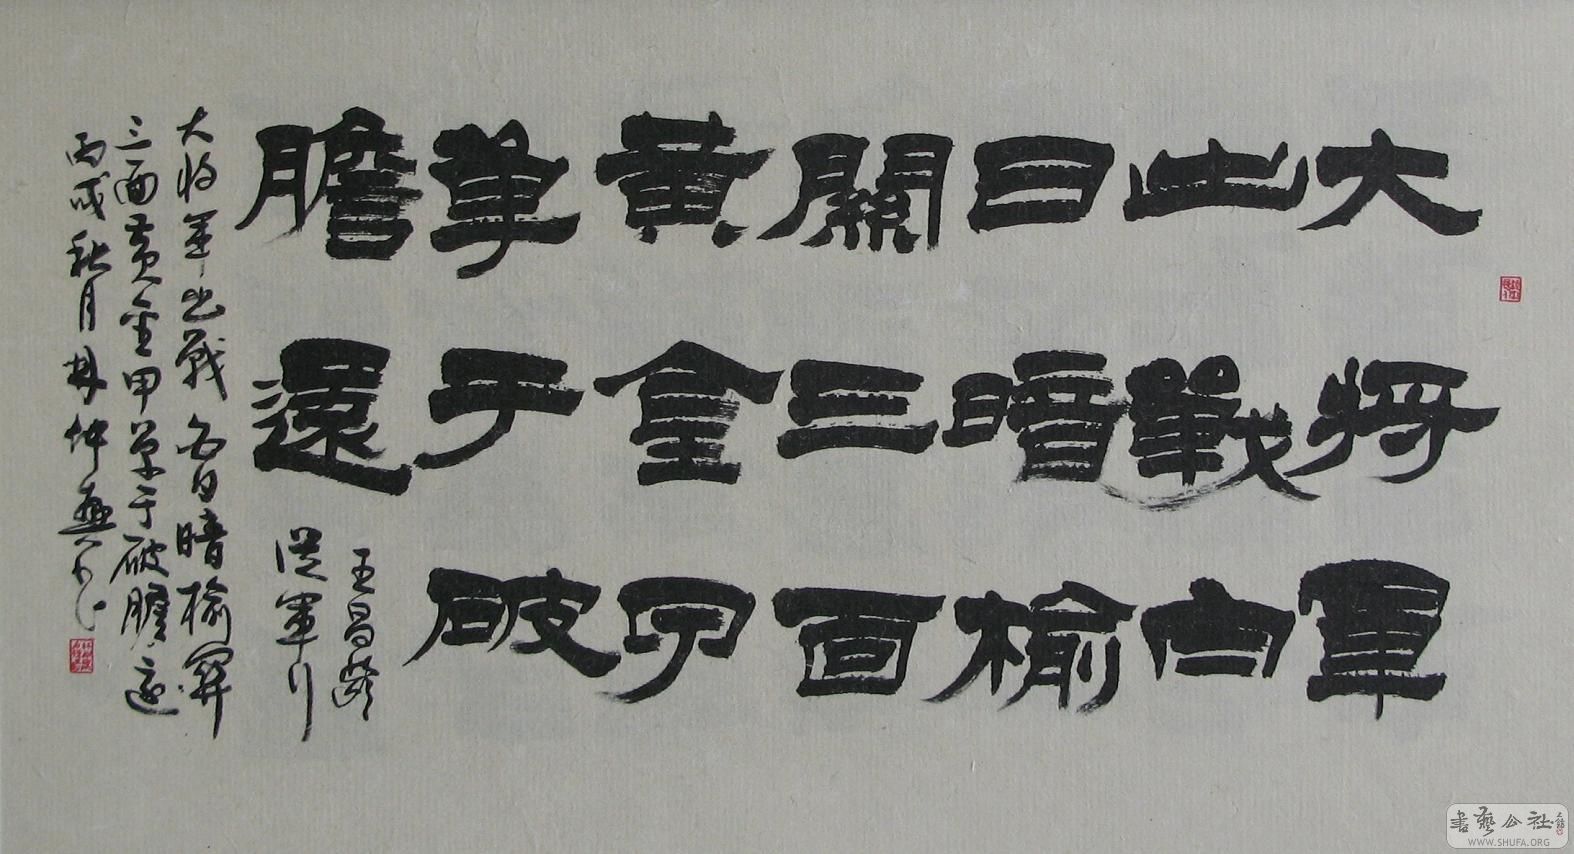 大將軍
出戰白
日暗榆
關三面
黄金甲
單于破
膽還
王昌齡
從軍行
大将軍出戰白日暗榆関
三面黄金甲單于破膽還
丙戌秋月林仲興书
書藝公社
WWW.SHUFA.ORG